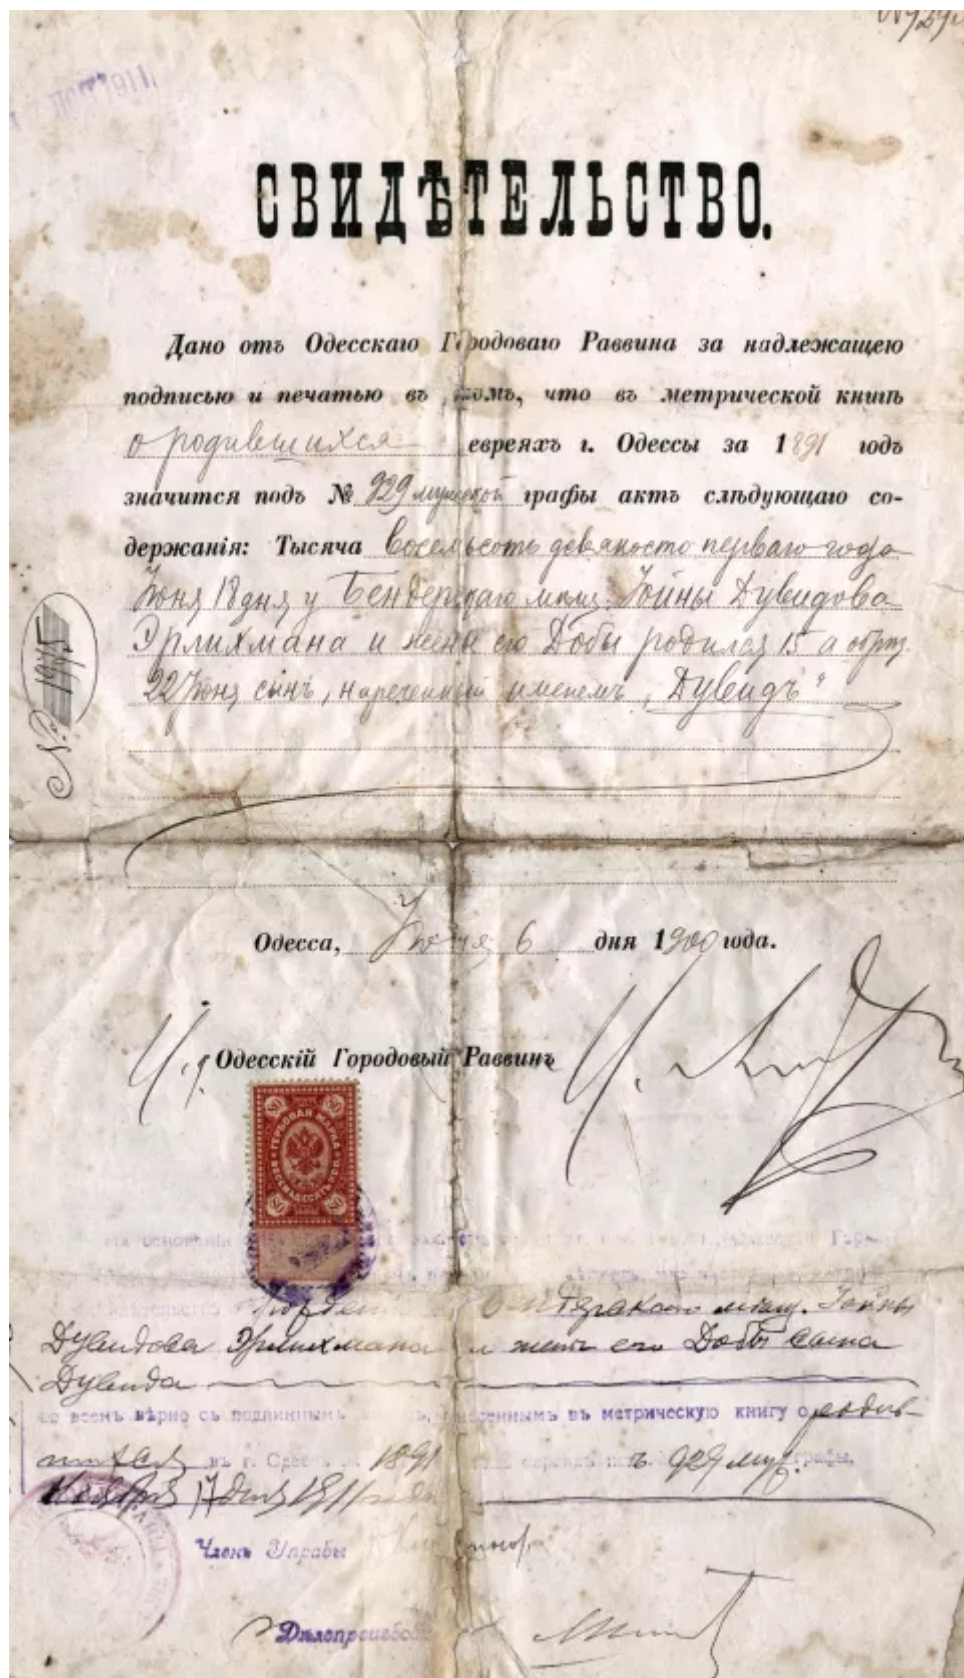 СВИДѢТЕЛЬСТВО.
Дано отъ Одесскаго Городоваго Раввина за надлежащею
подписью и печатью въ томъ, что въ метрической книгѣ
о родившихся евреяхъ г. Одессы за 1891 годъ
значится подъ № 929 мужской графы актъ слѣдующаго со-
держанія: Тысяча восемьсотъ девяносто перваго года
Іюня 18 дня у Бендерскаго мѣщ. Іойны Дувидова
Эрлихмана и жены его Добы родился 15 а обрѣз.
22 Іюня сынъ, нареченный именемъ „Дувидъ“
№ 1945
Одесса, Іюня 6 дня 1900 года.
И. д. Одесскій Городовый Раввинъ
80 80
ГЕРБОВАЯ МАРКА
ВОСЕМЬДЕСЯТЪ КОП.
80 80
На основаніи
Бендерскаго мѣщ. Іойны
Дувидова Эрлихмана и жены его Добы сына
Дувида
во всемъ вѣрно съ подлиннымъ въ метрическую книгу о родив-
шихся въ г. Одессѣ за 1891 929 муж. графы.
Ноября 17 дня 1911 года
Членъ Управы
Дѣлопроизвод